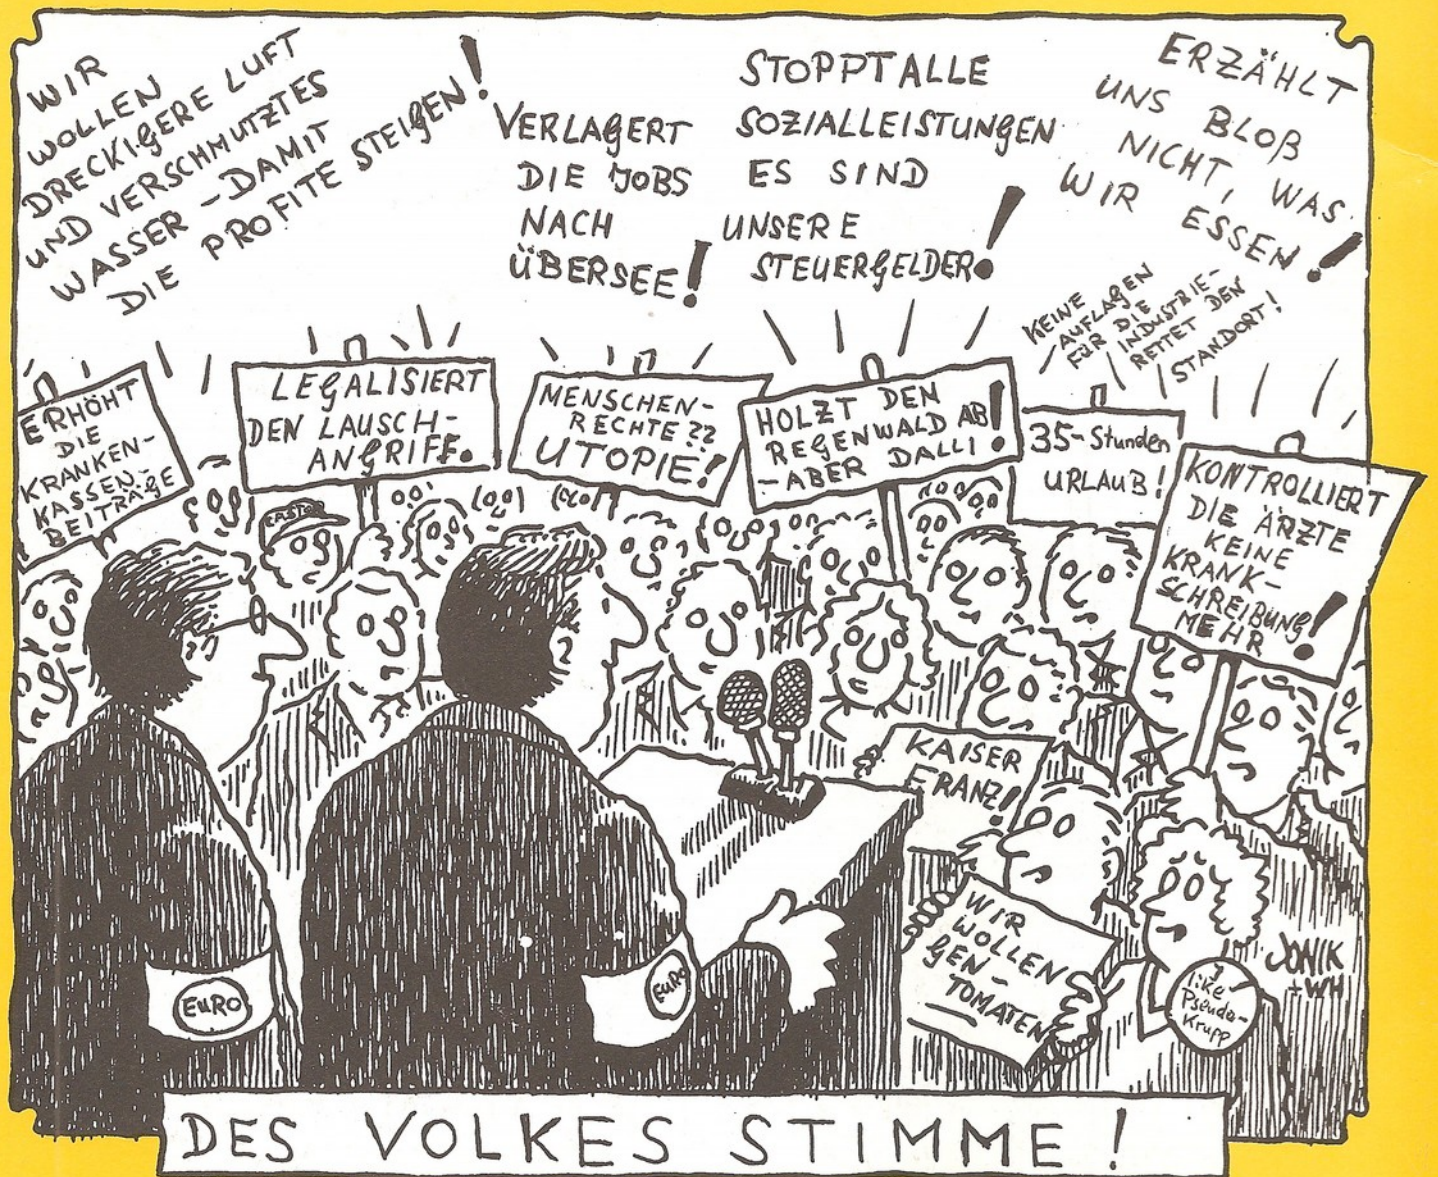 WIR
WOLLEN
DRECKIGERE LUFT
UND VERSCHMUTZTES
WASSER – DAMIT
DIE PROFITE STEIGEN!
VERLAGERT
DIE JOBS
NACH
ÜBERSEE!
STOPPT ALLE
SOZIALLEISTUNGEN
ES SIND
UNSERE
STEUERGELDER!
ERZÄHLT
UNS BLOß
NICHT, WAS
WIR ESSEN!
KEINE
AUFLAGEN
FÜR DIE
INDUSTRIE-
RETTET DEN
STANDORT!
ERHÖHT
DIE
KRANKEN-
KASSEN-
BEITRÄGE
LEGALISIERT
DEN LAUSCH-
ANGRIFF.
MENSCHEN-
RECHTE??
UTOPIE!
HOLZT DEN
REGENWALD AB!
– ABER DALLI!
35-Stunden
URLAUB!
KONTROLLIERT
DIE ÄRZTE
KEINE
KRANK-
SCHREIBUNG
MEHR!
CASTOR
KAISER
FRANZ!
WIR
WOLLEN
GEN-
TOMATEN
I
like
Pseudo-
Krupp
JONIK
+WH
EURO
EURO
DES VOLKES STIMME!